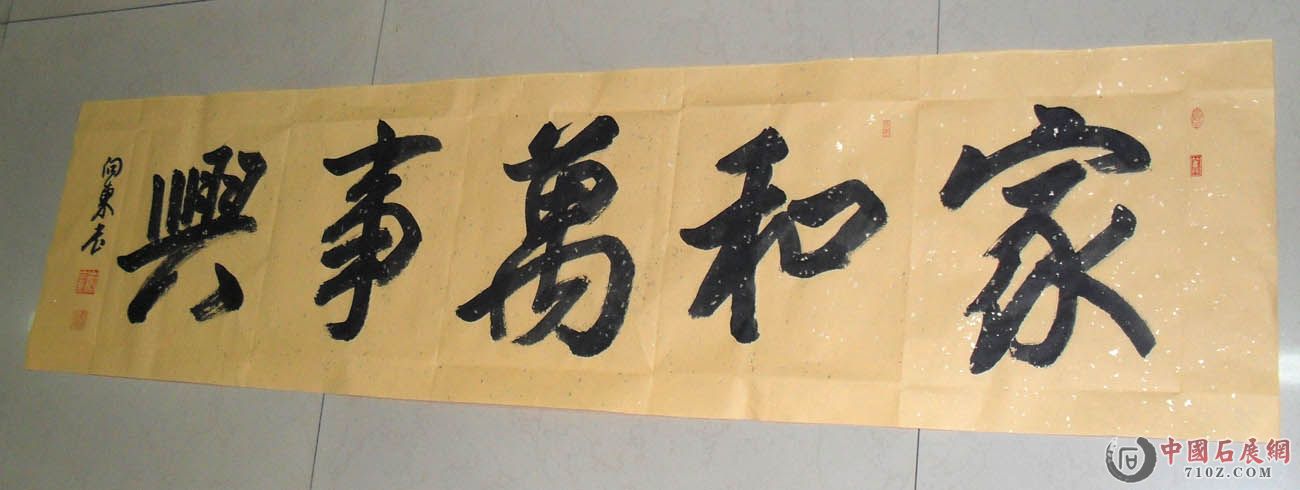 家和萬事興
向東書
中國石展網
710Z.COM